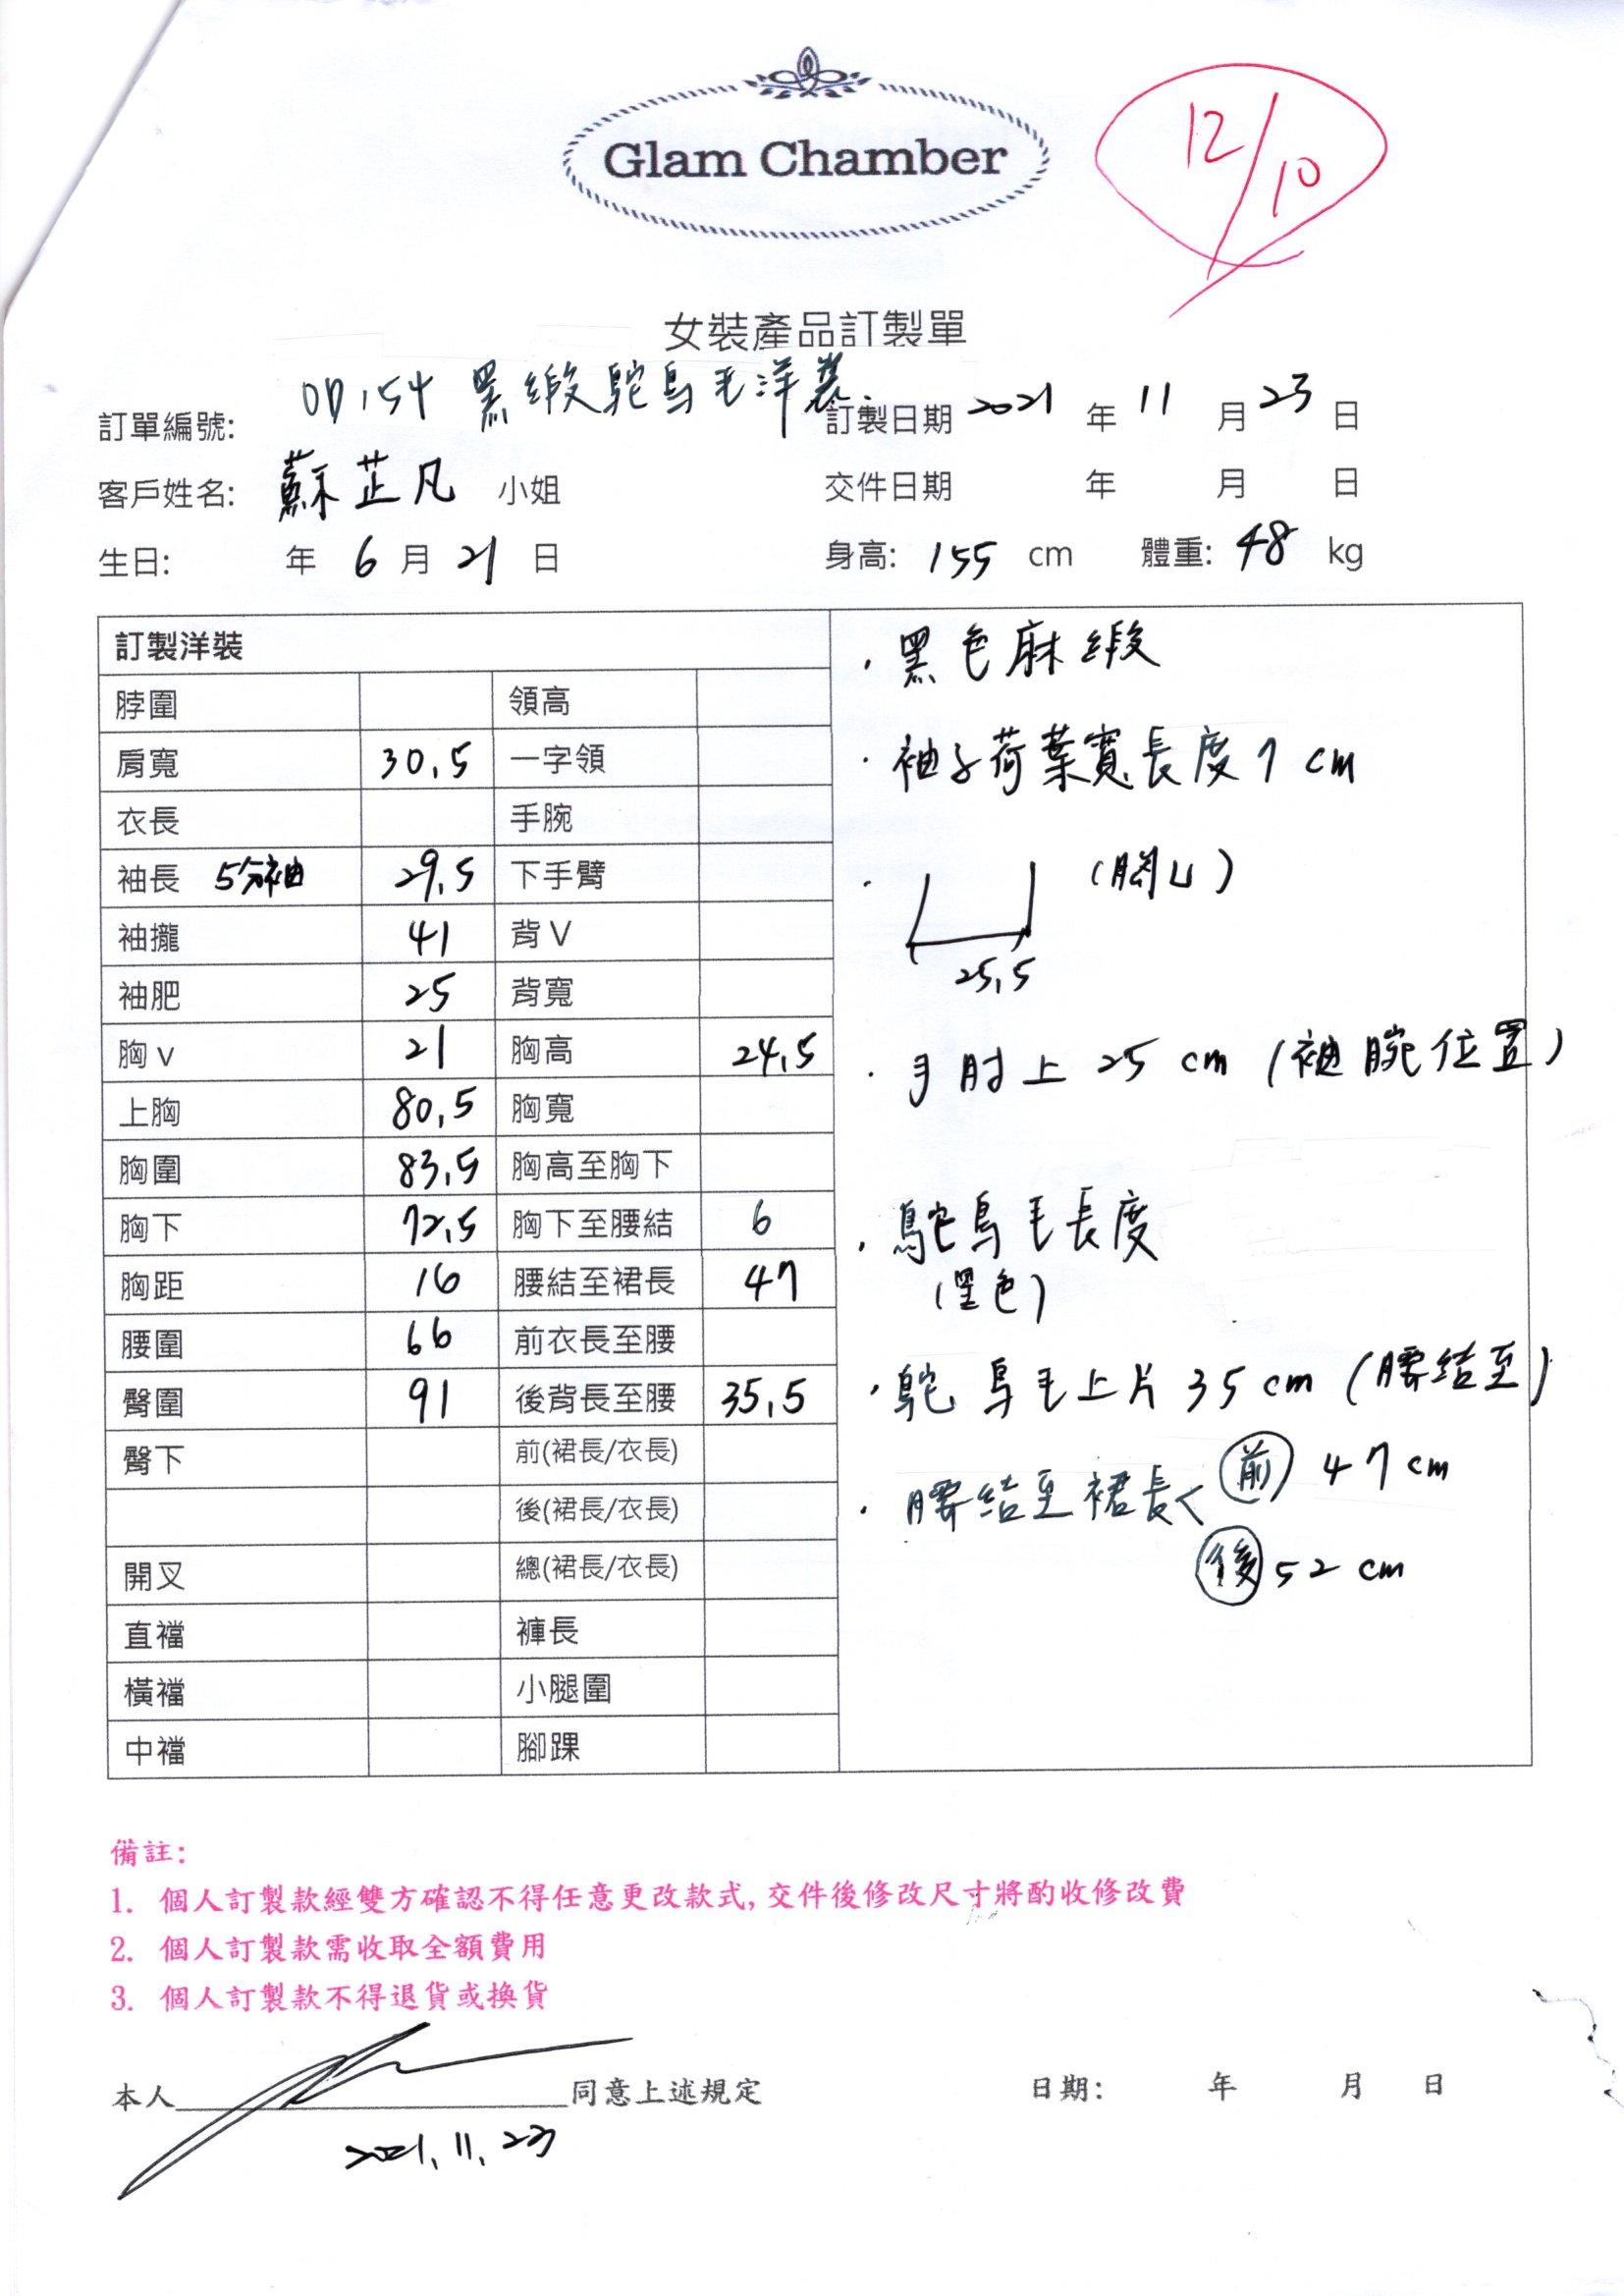 Glam Chamber
12/10
女裝產品訂製單
訂單編號: OD154 黑緞鴕鳥毛洋裝. 訂製日期 2021 年 11 月 23 日
客戶姓名: 蘇芷凡 小姐 交件日期 年 月 日
生日: 年 6 月 21 日 身高: 155 cm 體重: 48 kg
訂製洋裝
脖圍 領高
肩寬 30.5 一字領
衣長 手腕
袖長 5分袖 29.5 下手臂
袖攏 41 背V
袖肥 25 背寬
胸v 21 胸高 24.5
上胸 80.5 胸寬
胸圍 83.5 胸高至胸下
胸下 72.5 胸下至腰結 6
胸距 16 腰結至裙長 47
腰圍 66 前衣長至腰
臀圍 91 後背長至腰 35.5
臀下 前(裙長/衣長)
後(裙長/衣長)
開叉 總(裙長/衣長)
直襠 褲長
橫襠 小腿圍
中襠 腳踝
· 黑色麻緞
· 袖子荷葉寬長度7cm
· (開凵)
25.5
· 手肘上 25 cm (袖腕位置)
· 鴕鳥毛長度
(黑色)
· 鴕鳥毛上片 35cm (腰結至)
· 腰結至裙長< 前 47cm
後 52 cm
備註:
1. 個人訂製款經雙方確認不得任意更改款式,交件後修改尺寸將酌收修改費
2. 個人訂製款需收取全額費用
3. 個人訂製款不得退貨或換貨
本人 同意上述規定 日期: 年 月 日
2021.11.23